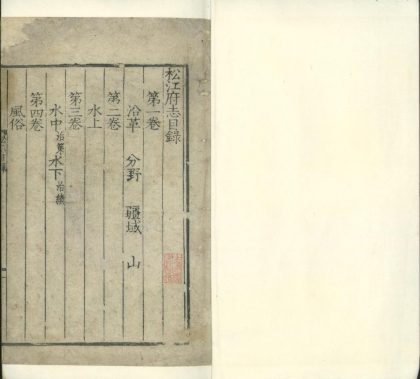 松江府志目錄
第一卷
沿革　分野　疆域　山
第二卷
水上
第三卷
水中治策水下治績
第四卷
風俗